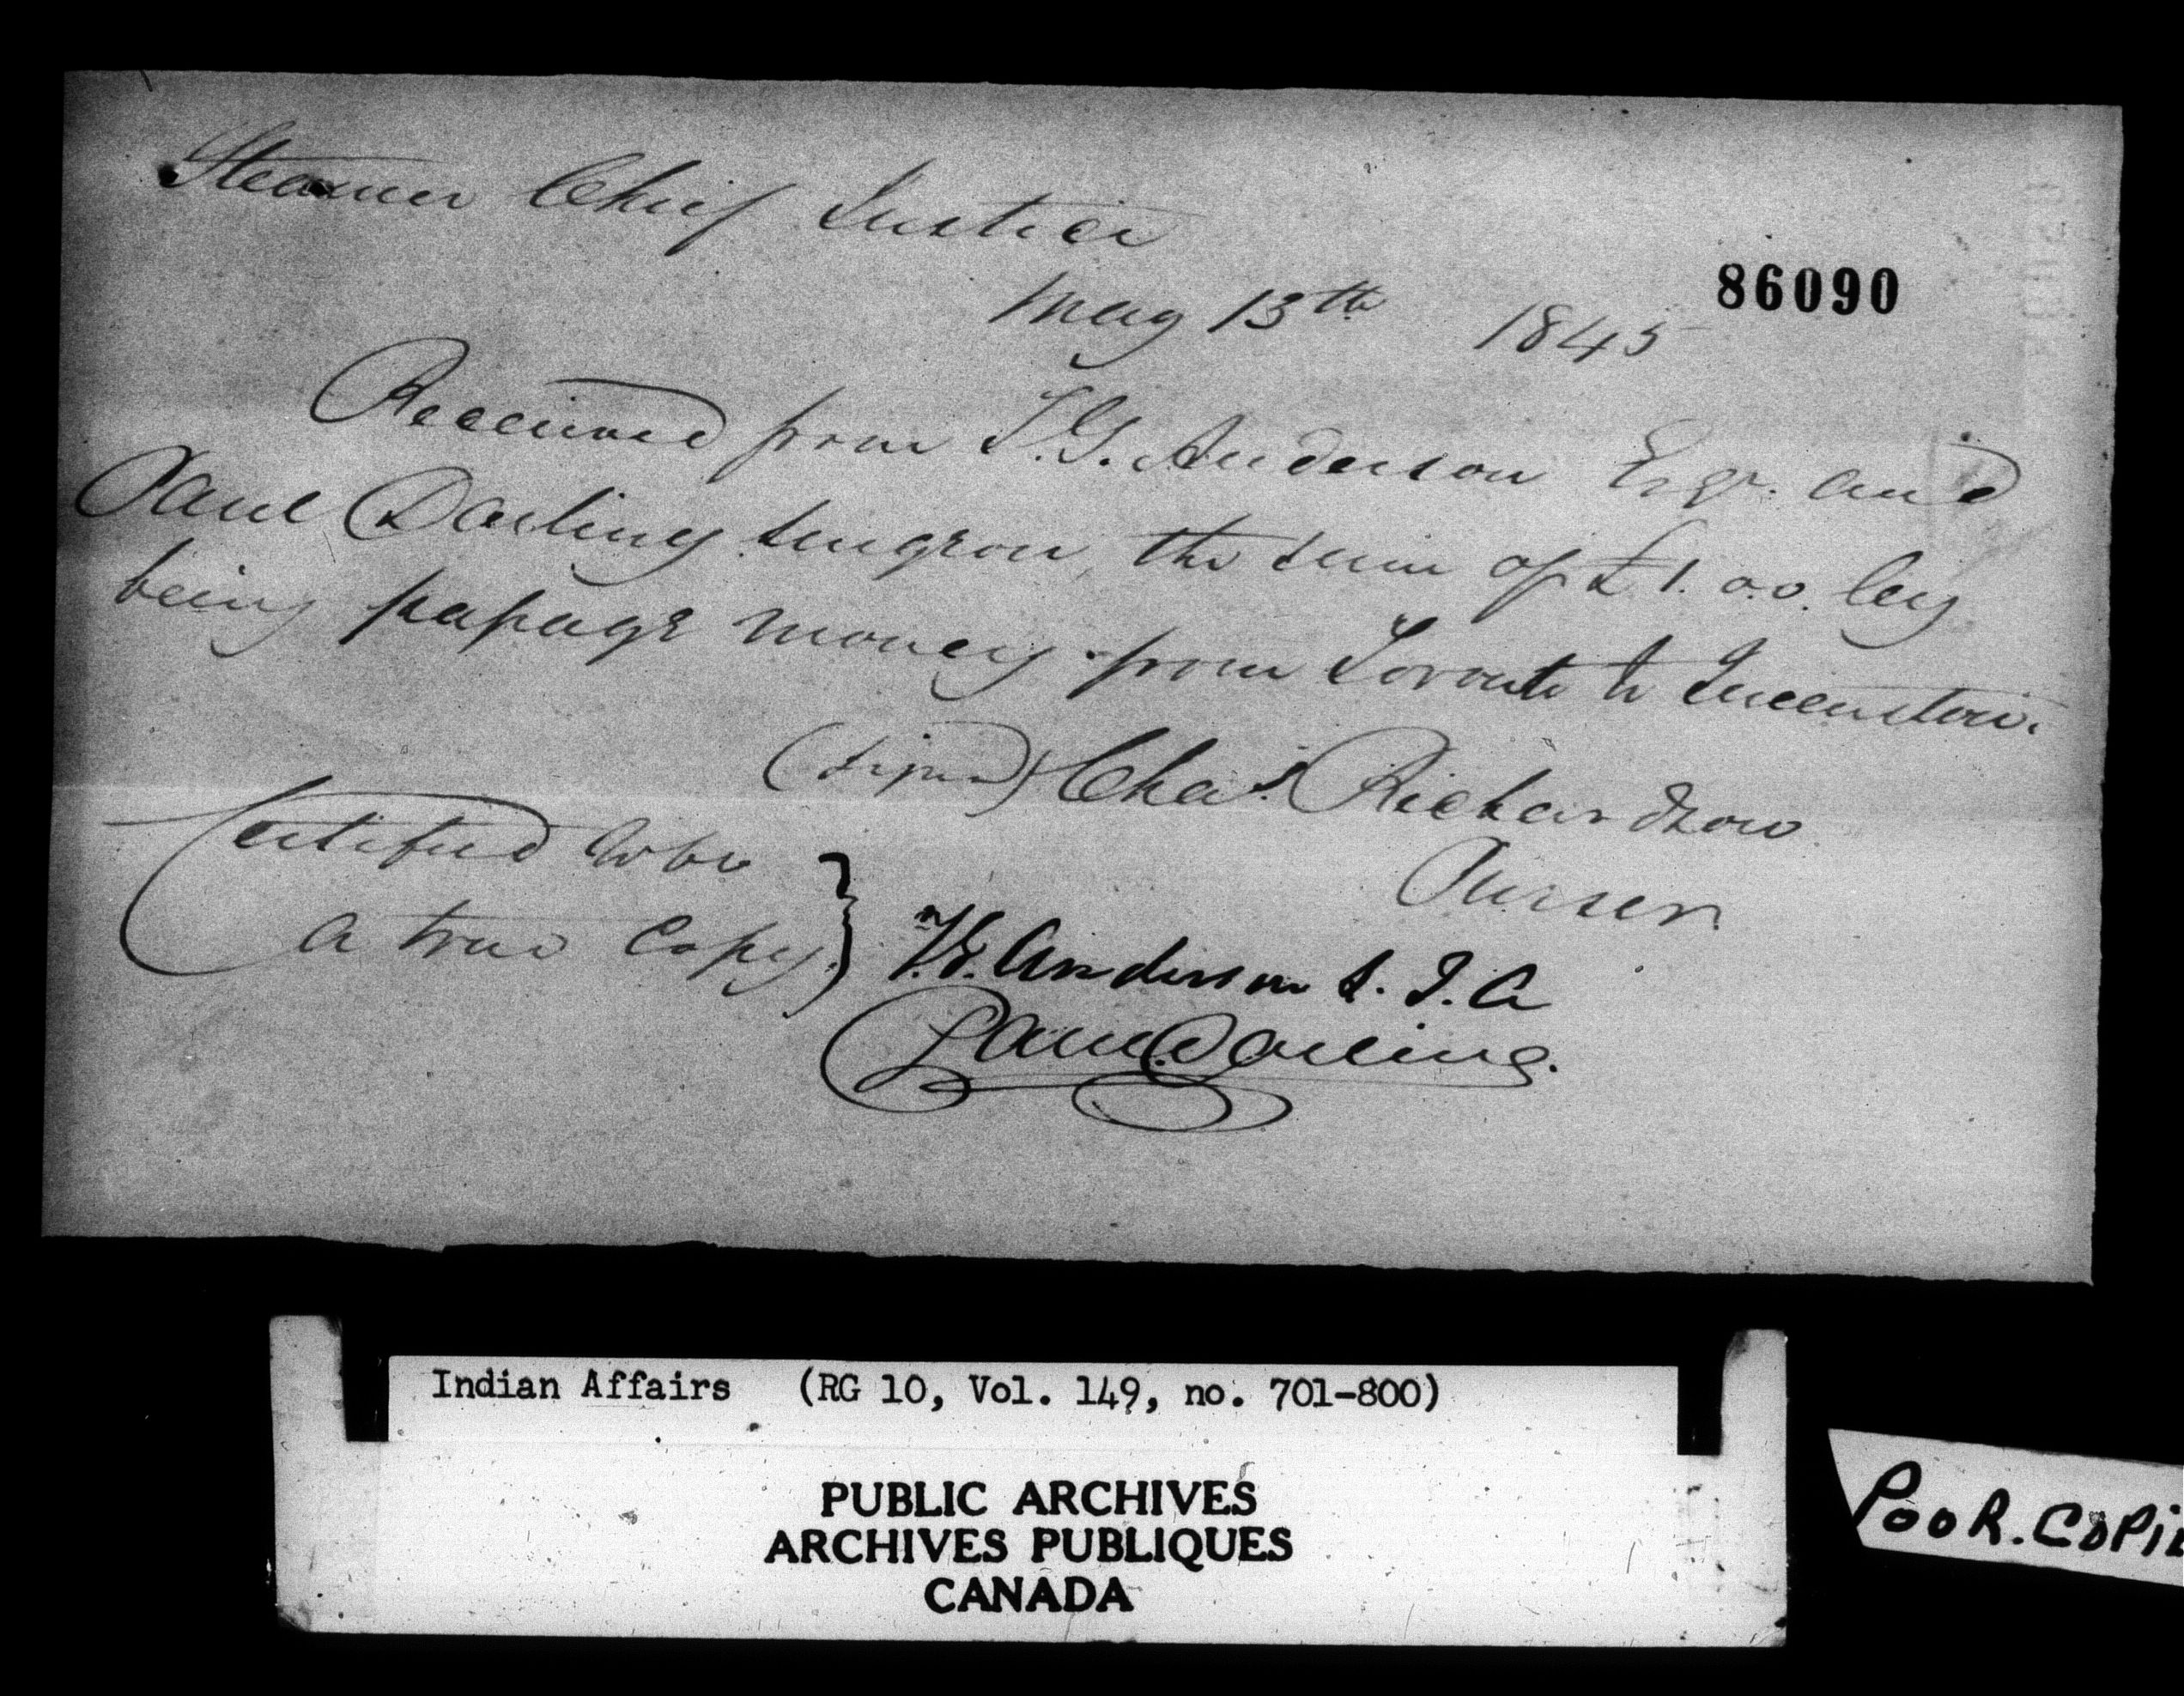 Steamer Chief Justice
May 13th 1845
86090
Received from T.G. Anderson Esqr. and
Paul Darling Surgeon, the sum of £1.0.0. Cy
being passage money from Toronto to Queenston.
(Signed) Chas. Richardson
Purser
Certified to be
a true Copy.
T.G. Anderson S. I. A
Paul Darling.
Indian Affairs (RG 10, Vol. 149, no. 701-800)
PUBLIC ARCHIVES
ARCHIVES PUBLIQUES
CANADA
POOR.COPIE